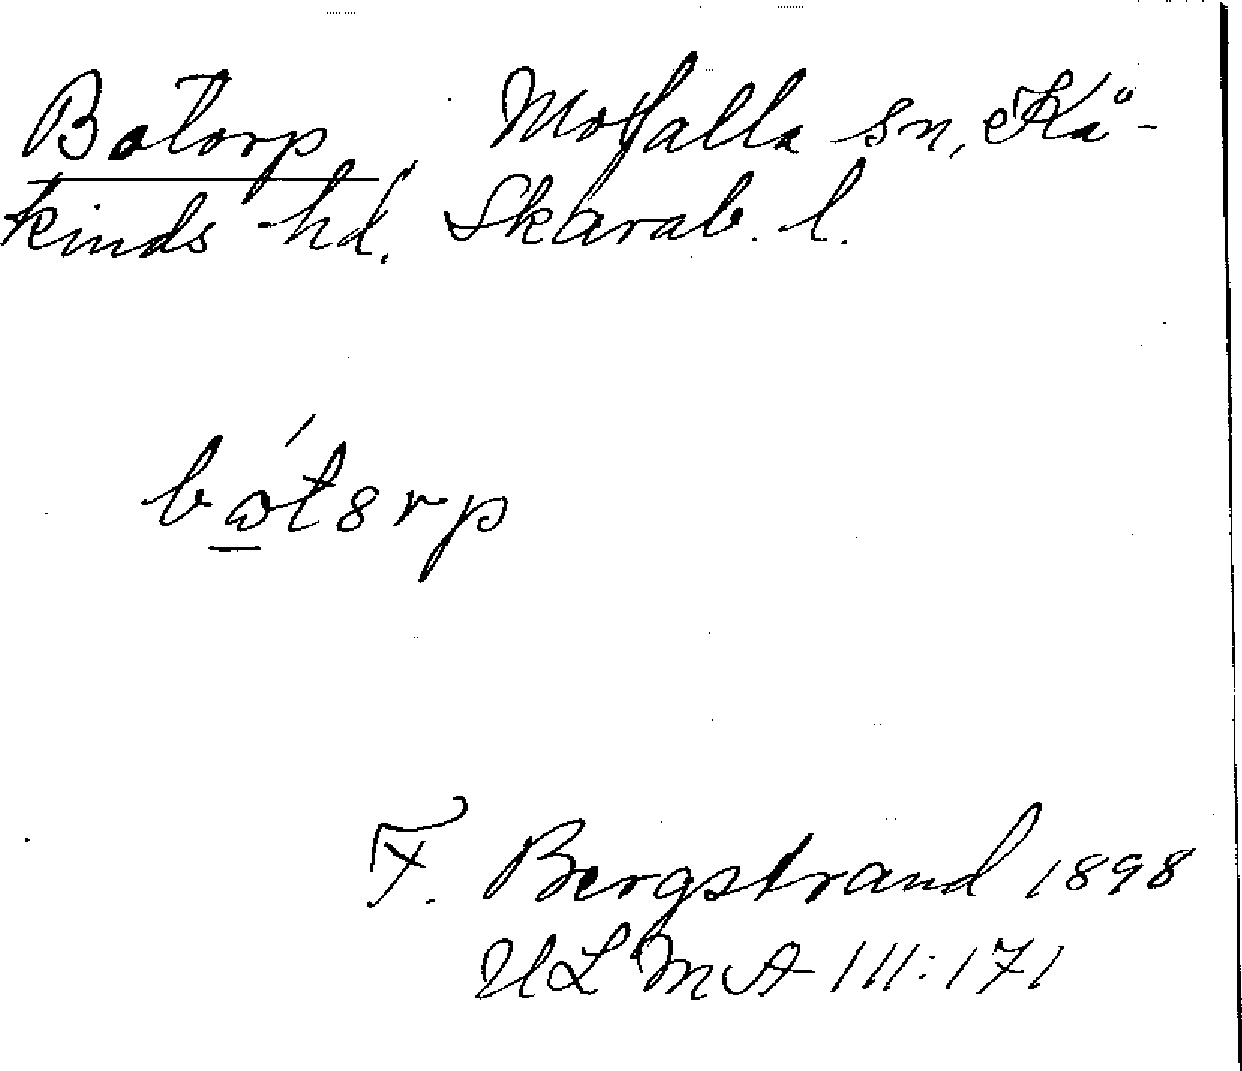 Botorp, Mofalla sn, Kå-
kinds hd. Skarab. l.
bώ̲t8rp
F. Bergstrand 1898
ULMA 111:171